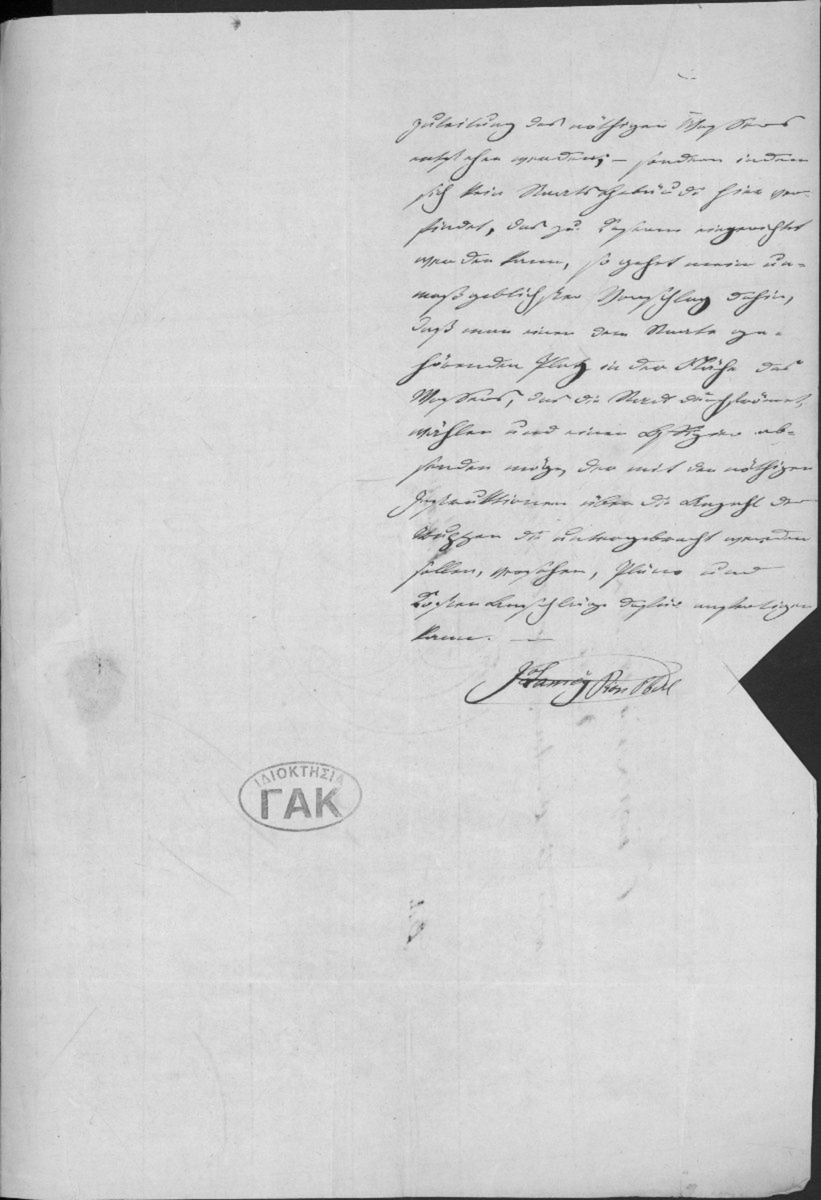 zuleitung des nöthigen Wassers
entstehen werden; – sondern indem
sich kein Staatsgebäude hier be-
findet, das zu Casern eingerichtet
werden kann, so gehet mein un-
maßgeblichster Vorschlag dahin,
daß man einen dem Staate ge-
hörenden Platz in der Nähe des
Wassers, das die Stadt durchströmet,
wählen und einen Offizier ab-
senden möge, der mit den nöthigen
Instruktionen über die Anzahl der
Truppen die untergebracht werden
sollen, versehen, Pläne und
Kosten Anschläge dafür anfertigen
kann. —
ΙΔΙΟΚΤΗΣΙΑ
ΓΑΚ